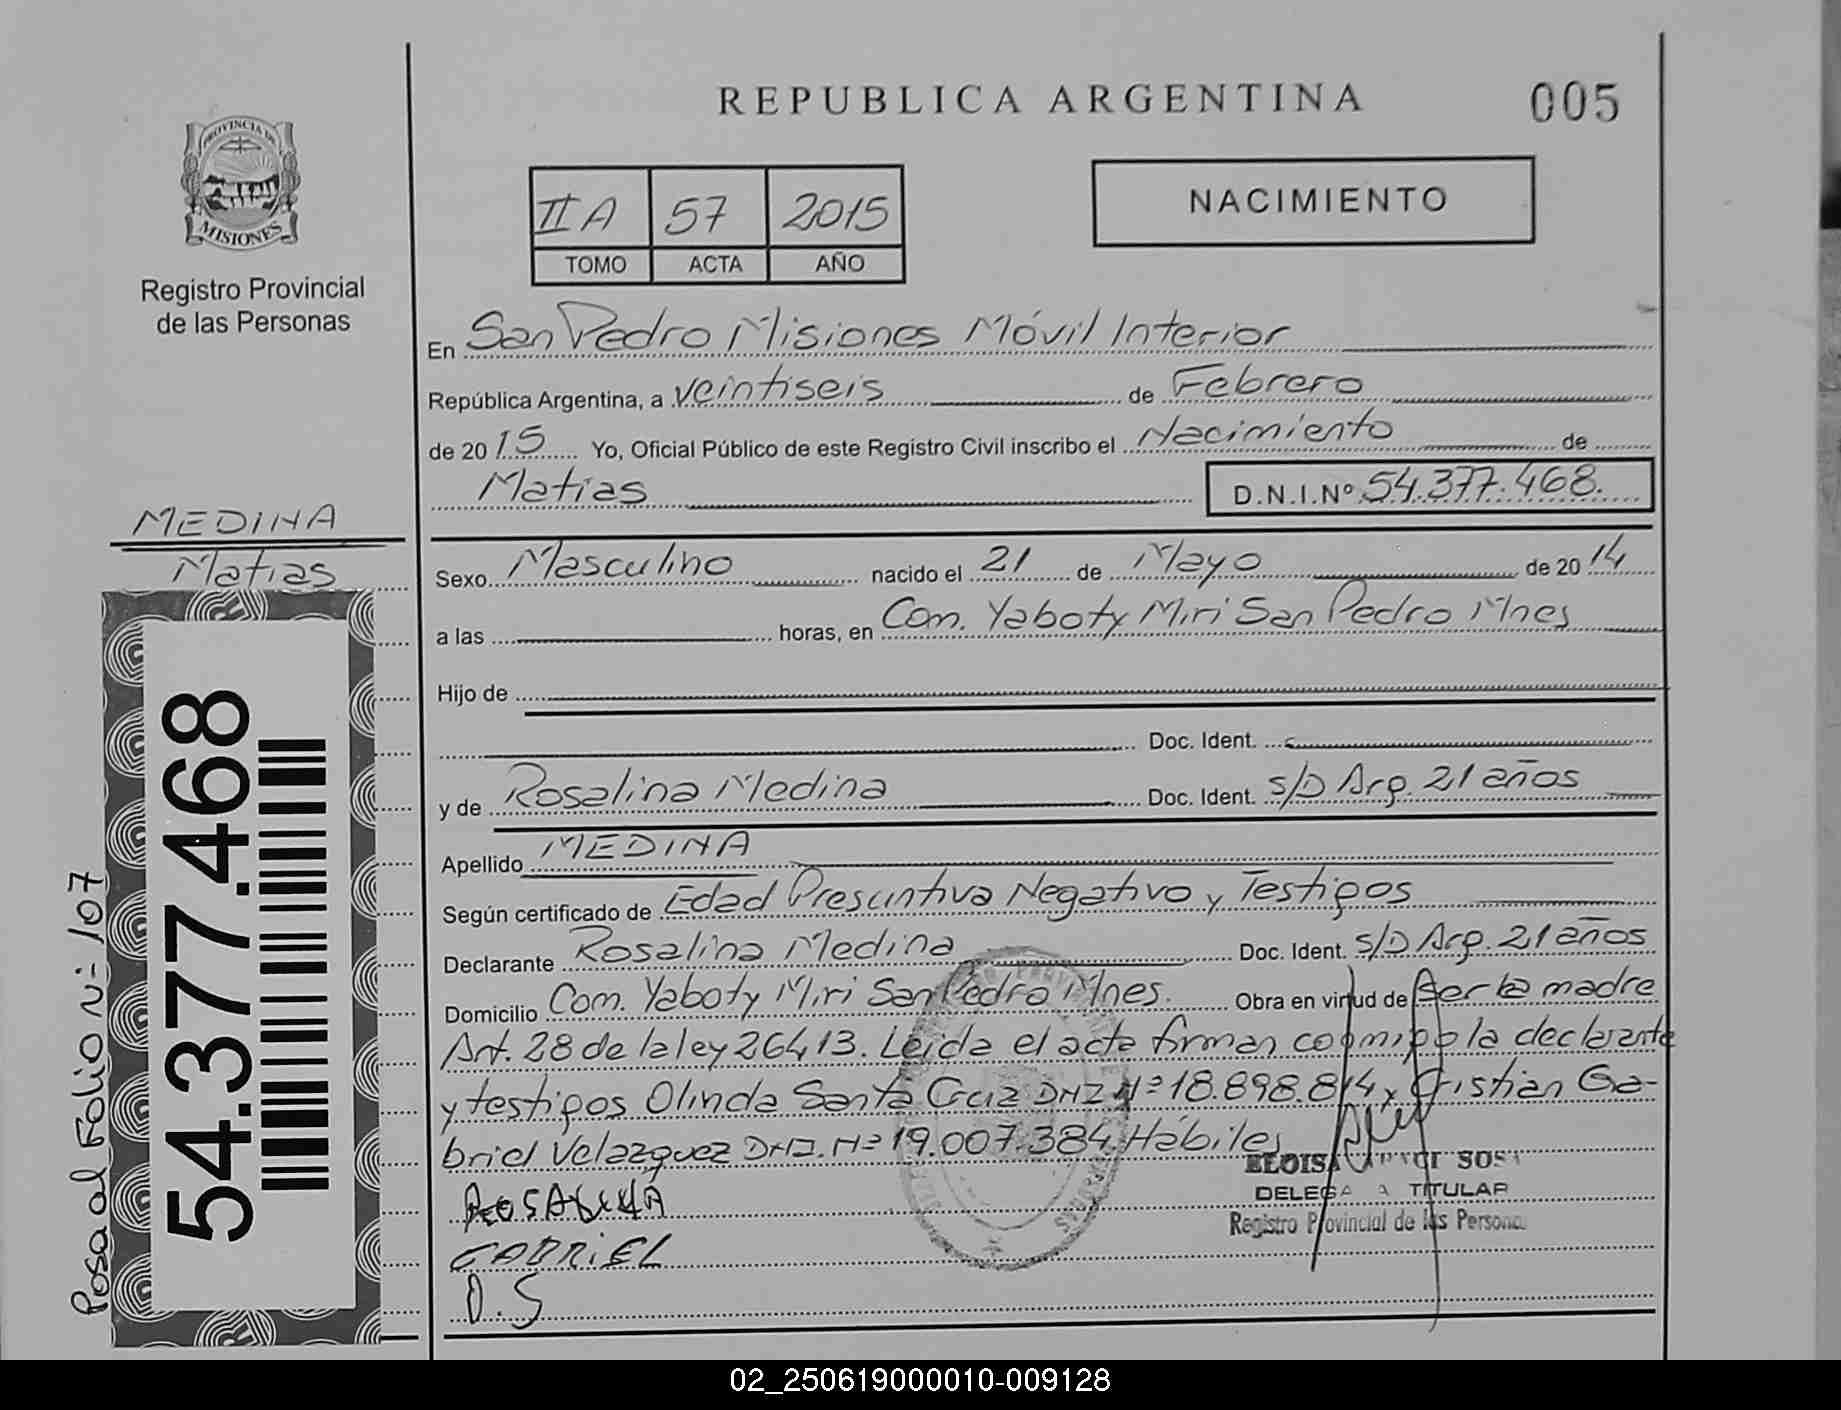 REPUBLICA ARGENTINA
005
PROVINCIA DE
MISIONES
Registro Provincial
de las Personas
II A 57 2015
TOMO ACTA AÑO
NACIMIENTO
En San Pedro Misiones Móvil Interior
República Argentina, a veintiseis de Febrero
de 2015 Yo, Oficial Público de este Registro Civil inscribo el Nacimiento de
Matias D.N.I.Nº 54.377.468.
MEDINA
Matias
54.377.468
Pasa al Folio Nº 107
Sexo Masculino nacido el 21 de Mayo de 2014
a las horas, en Com. Yaboty Miri San Pedro Mnes
Hijo de
Doc. Ident.
y de Rosalina Medina Doc. Ident. S/D Arg. 21 años
Apellido MEDINA
Según certificado de Edad Presuntiva Negativo y Testigos
Declarante Rosalina Medina Doc. Ident. S/D Arg. 21 años
Domicilio Com. Yaboty Miri San Pedro Mnes. Obra en virtud de Ser la madre
Art. 28 de la ley 26413. Leida el acta firman conmigo la declarante
y testigos Olinda Santa Cruz DNI Nº 18.898.814 y Cristian Ga-
briel Velazquez DNI. Nº 19.007.384 Hábiles
ROSALINA
GABRIEL
O.S
ELOISA SOSA
DELEGADA TITULAR
Registro Provincial de las Personas
02_250619000010-009128